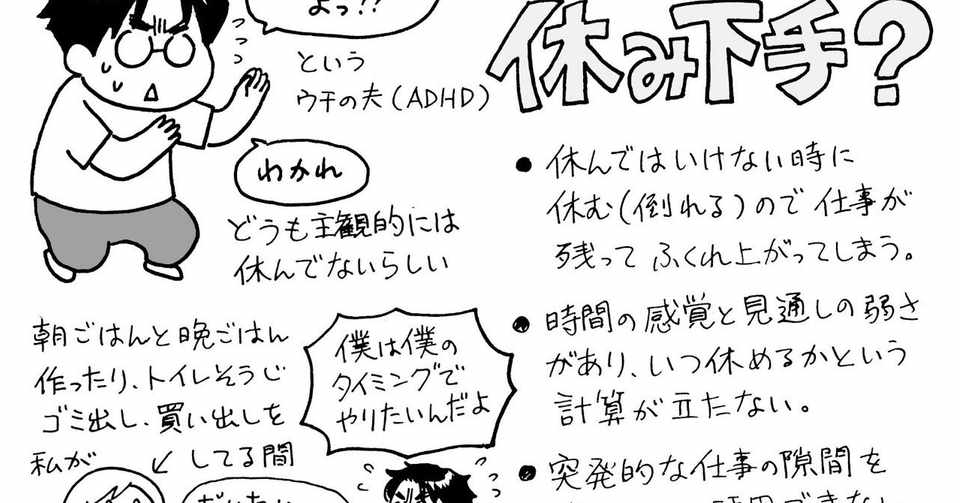 休み下手?
よっ!?
という
ウチの夫(ADHD)
わかれ
どうも主観的には
休んでないらしい
朝ごはんと晩ごはん
作ったり、トイレそうじ
ゴミ出し、買い出しを
私が
してる間
僕は僕の
タイミングで
やりたいんだよ
● 休んではいけない時に
休む(倒れる)ので仕事が
残って ふくれ上がってしまう。
● 時間の感覚と見通しの弱さ
があり、いつ休めるかという
計算が立たない。
● 突発的な仕事の隙間を